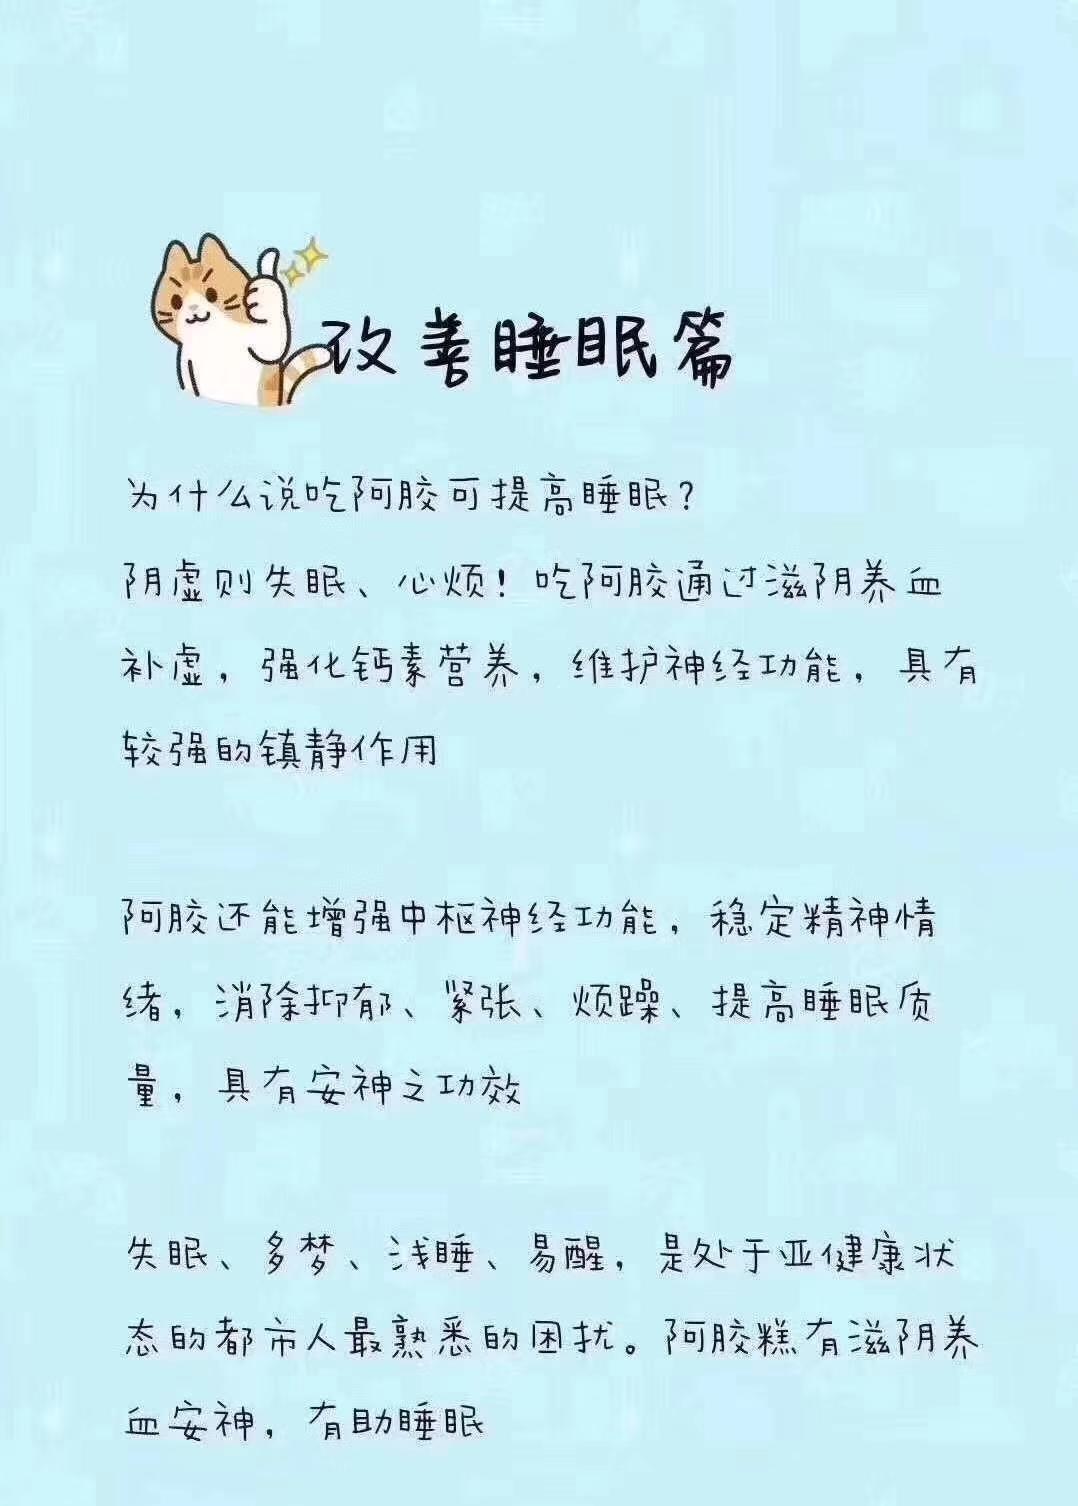 改善睡眠篇
为什么说吃阿胶可提高睡眠？
阴虚则失眠、心烦！吃阿胶通过滋阴养血
补虚，强化钙素营养，维护神经功能，具有
较强的镇静作用
阿胶还能增强中枢神经功能，稳定精神情
绪，消除抑郁、紧张、烦躁、提高睡眠质
量，具有安神之功效
失眠、多梦、浅睡、易醒，是处于亚健康状
态的都市人最熟悉的困扰。阿胶糕有滋阴养
血安神，有助睡眠